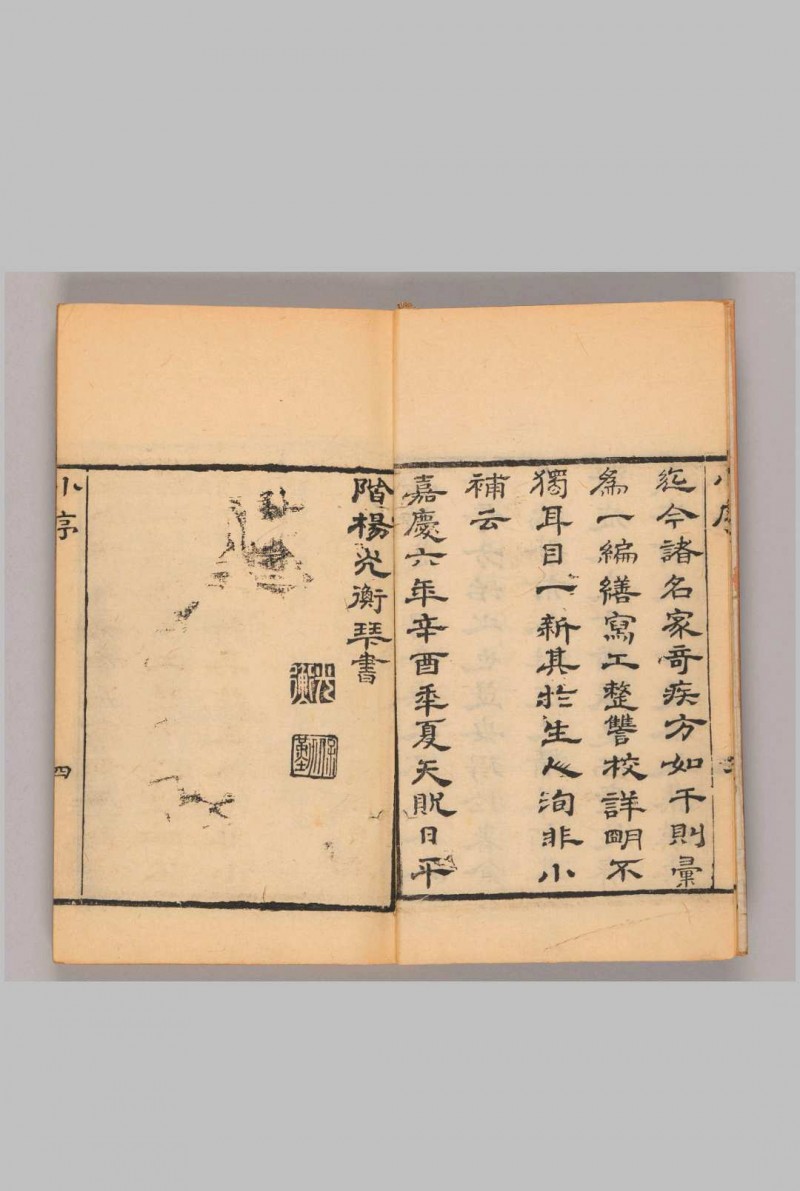 迄今諸名家奇疾方如干則彙
為一編繕寫工整讐校詳明不
獨耳目一新其於生心洵非小
補云
嘉慶六年辛酉季夏天貺日平
階楊光衡琴書
光衡
小序
四